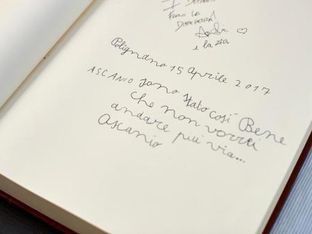 Fano la
e la zia
Polignano 15 Aprile 2017
ASCANIO Sono Stato così Bene
che non vorrei
andare più via...
Ascanio